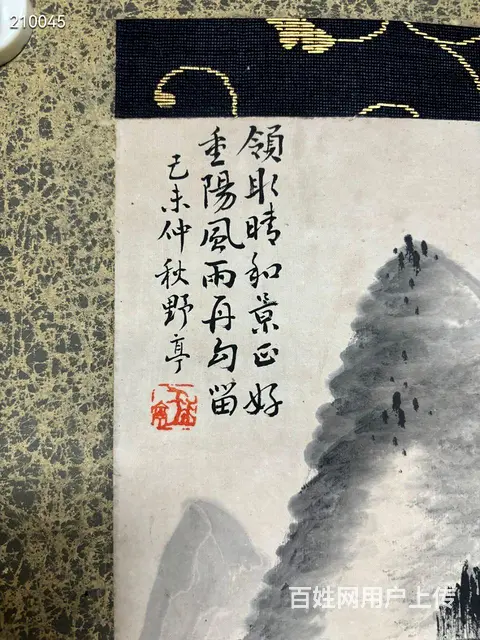 210045
領取晴和景正好
重陽風雨再勾留
己未仲秋野亭
百姓网用户上传